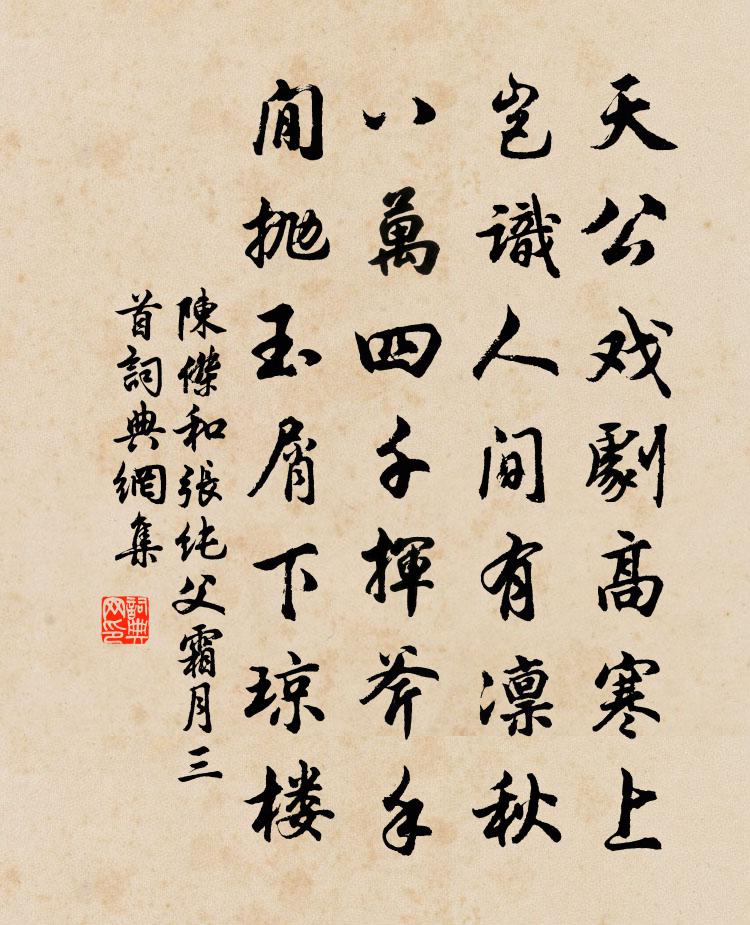 天公戏劇高寒上
岂識人间有凛秋
八萬四千揮斧手
閒抛玉屑下琼楼
陳傑和張純父霜月三
首詞典網集
詞典网印